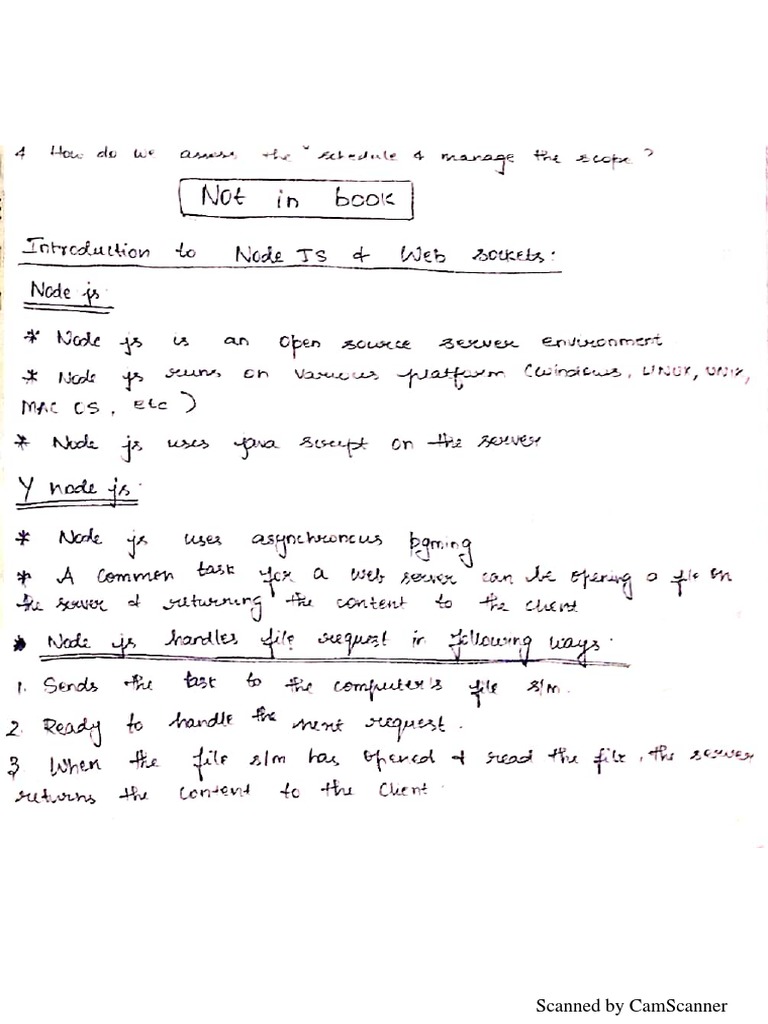 4 How do we assess the "schedule & manage the scope?
Not in book
Introduction to Node JS & Web sockets:
Node js:
* Node js is an open source server environment
* Node js runs on various platform (Windows, LINUX, UNIX,
MAC OS, Etc)
* Node js uses java script on the server
Y node js:
* Node js uses asynchronous pgming
* A common task for a web server can be opening a file on
the server & returning the content to the client
* Node js handles file request in following ways.
1. Sends the task to the computer's file s/m.
2. Ready to handle the next request.
3 When the file s/m has opened & read the file, the server
returns the content to the client.
Scanned by CamScanner